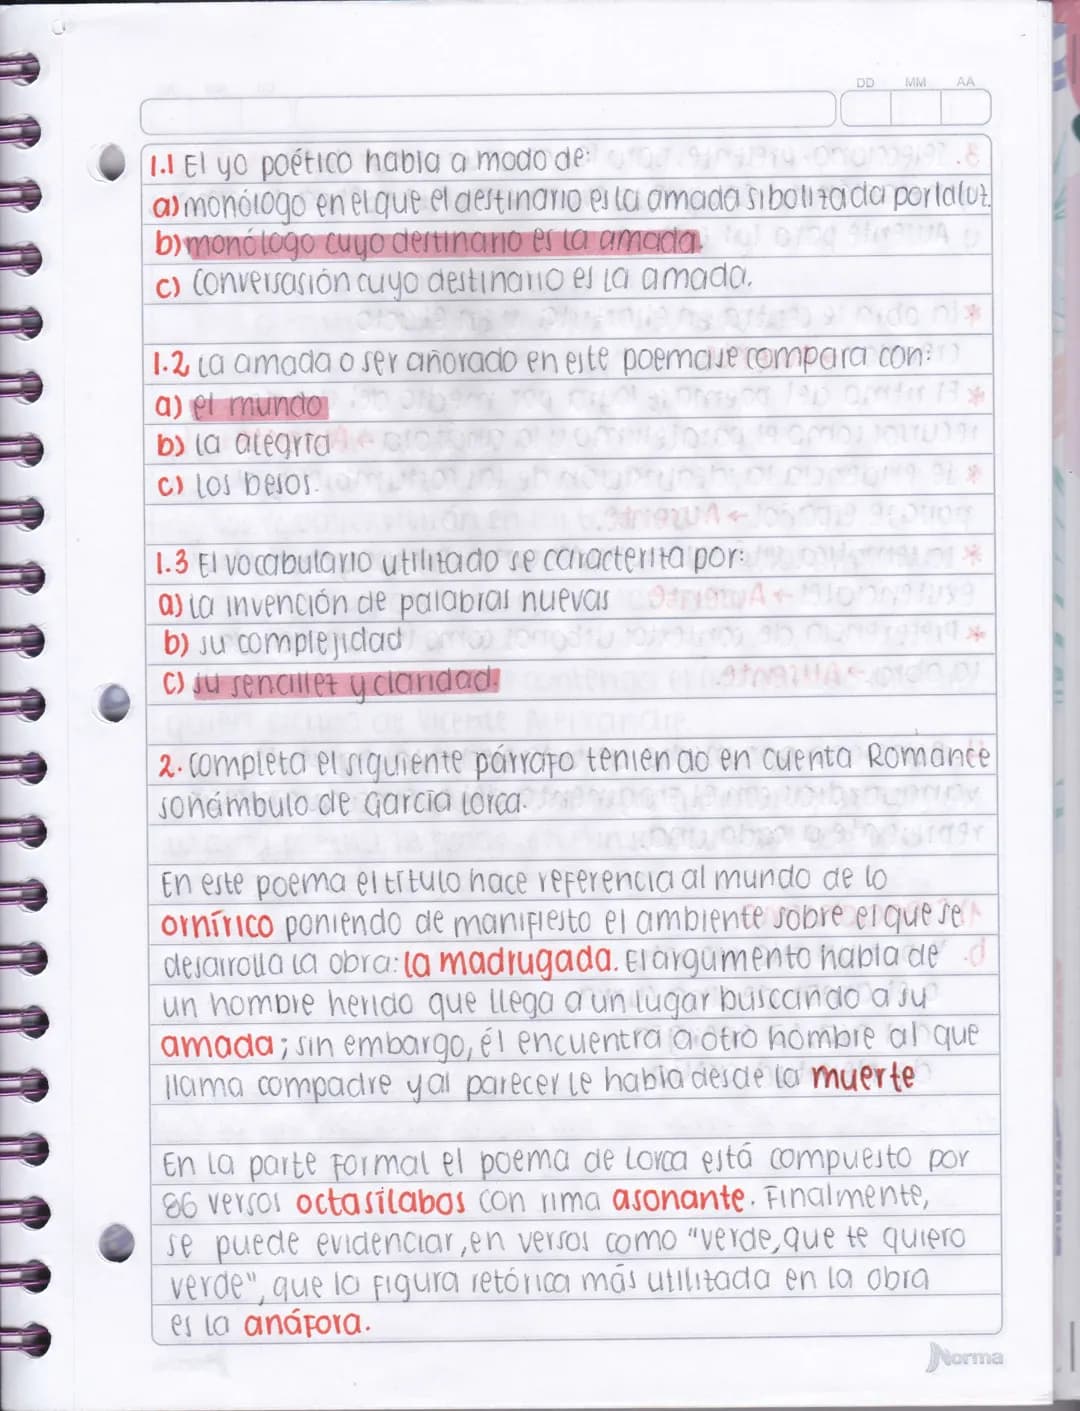 DD MM AA
1.1 El yo poético habla a modo de:
a) monólogo en el que el destinario es la amada sibolizada por la luz.
b) monólogo cuyo destinario es la amada.
c) Conversasión cuyo destinario es la amada.
1.2 La amada o ser añorado en este poema se compara con:
a) el mundo
b) La alegría
c) Los besos.
1.3 El vocabulario utilizado se caracteriza por:
a) La invención de palabras nuevas
b) su complejidad
c) su sencillez y claridad.
2. Completa el siguiente párrafo teniendo en cuenta Romance
sonámbulo de García Lorca.
En este poema el título hace referencia al mundo de lo
ornírico poniendo de manifiesto el ambiente sobre el que se
desarrolla la obra: la madrugada. El argumento habla de
un hombre herido que llega a un lugar buscando a su
amada; sin embargo, él encuentra a otro hombre al que
llama compadre y al parecer le habla desde la muerte
En la parte formal el poema de Lorca está compuesto por
86 versos octasílabos con rima asonante. Finalmente,
se puede evidenciar, en versos como "verde, que te quiero
verde", que la figura retórica más utilizada en la obra
es la anáfora.
Norma